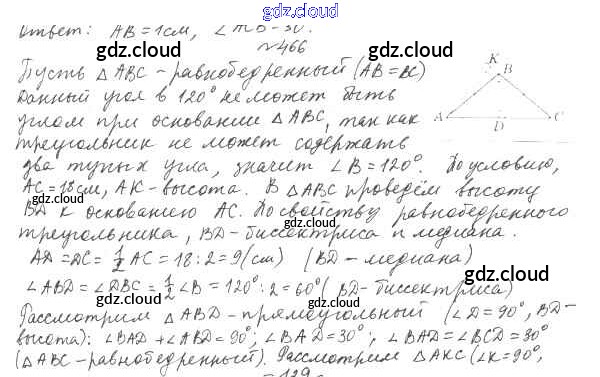 gdz.cloud
Ответ: AB = 1см,
№466
gdz.cloud gdz.cloud
Пусть △ABC - равнобедренный (AB = BC)
Данный угол в 120° не может быть
углом при основании △ABC, так как
треугольник не может содержать
два тупых угла, значит ∠B = 120°. По условию,
AC = 18см, AK - высота. В △ABC проведём высоту
BD к основанию AC. По свойству равнобедренного
треугольника, BD - биссектриса и медиана.
AD = DC = 1/2 AC = 18 : 2 = 9 (см) (BD - медиана)
∠ABD = ∠DBC = 1/2 ∠B = 120° : 2 = 60° (BD - биссектриса)
Рассмотрим △ABD - прямоугольный (∠D = 90°, BD -
высота): ∠BAD + ∠ABD = 90°; ∠BAD = 30°; ∠BAD = ∠BCD = 30°
(△ABC - равнобедренный). Рассмотрим △AKC (∠K = 90°,
129
K
B
A
D
C
gdz.cloud gdz.cloud
gdz.cloud gdz.cloud
gdz.cloud gdz.cloud
gdz.cloud gdz.cloud
gdz.cloud gdz.cloud